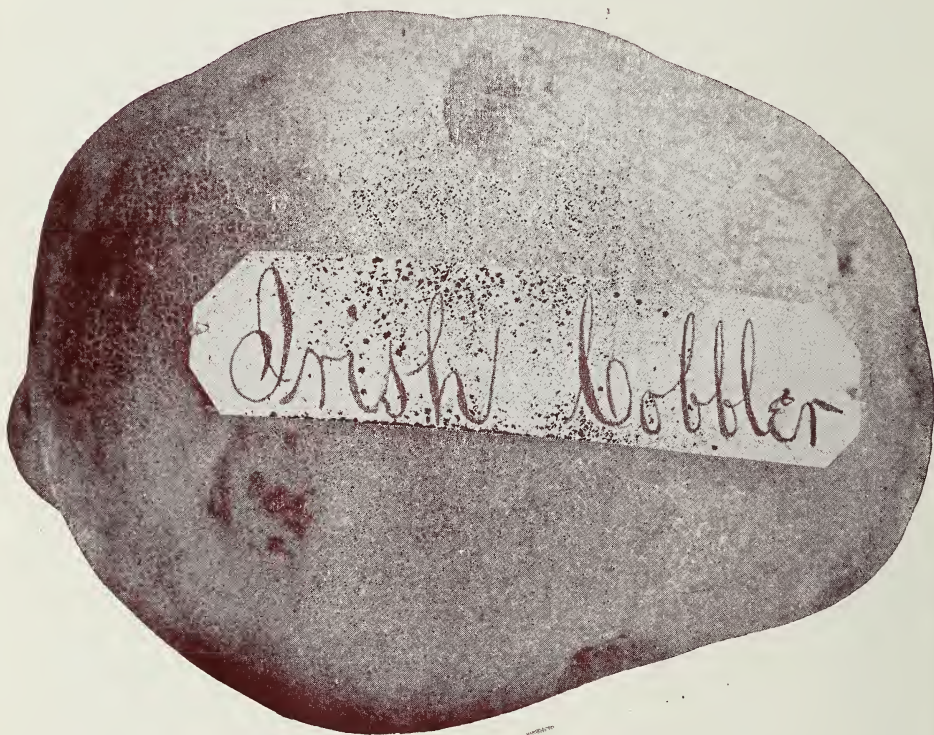 Irish Cobbler